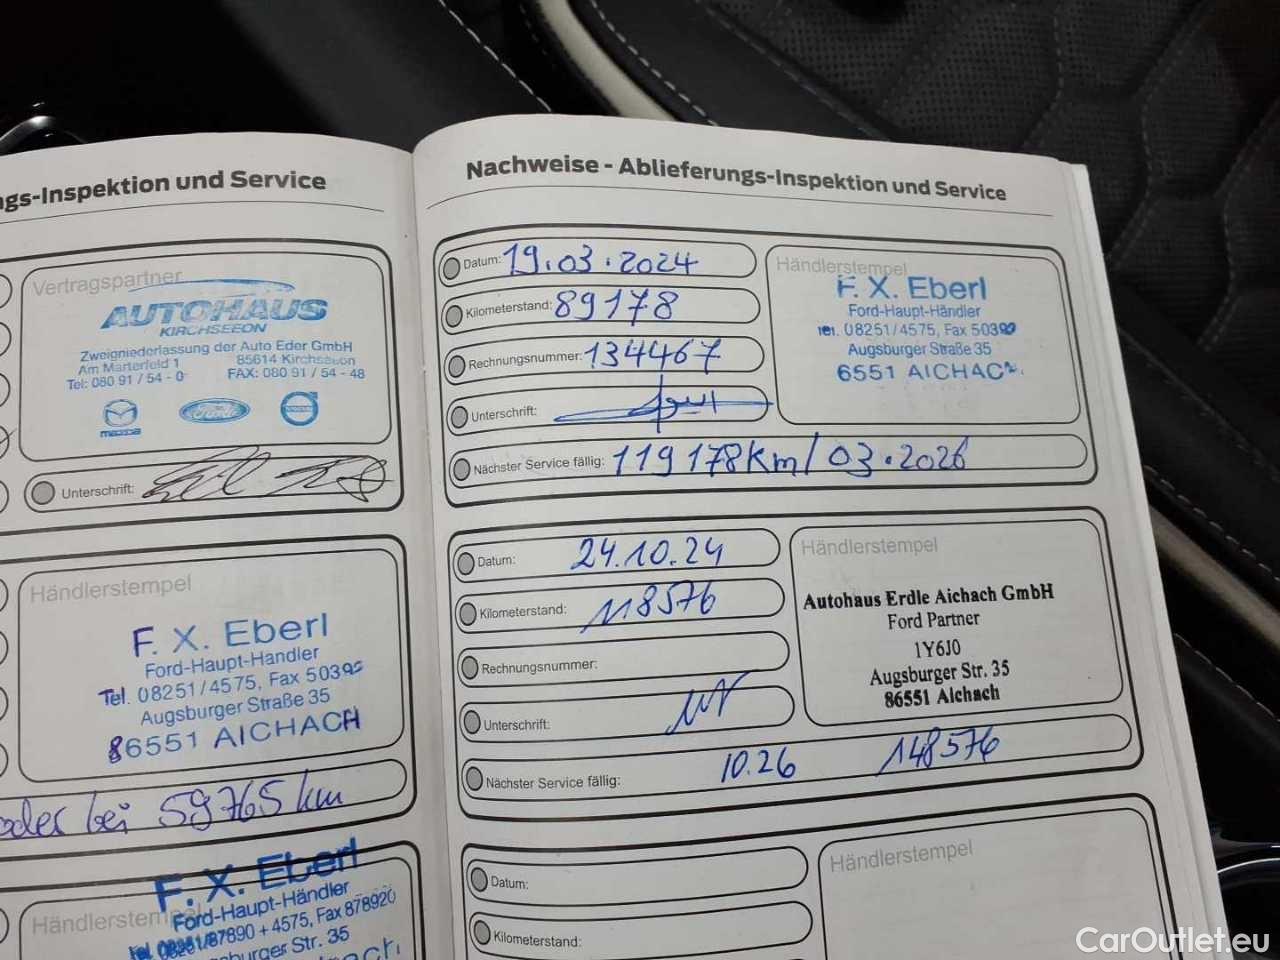 ngs-Inspektion und Service
Vertragspartner
AUTOHAUS
KIRCHSEEON
Zweigniederlassung der Auto Eder GmbH
Am Marterfeld 1 85614 Kirchseeon
Tel: 080 91 / 54 - 0 FAX: 080 91 / 54 - 48
mazda Ford VOLVO
Unterschrift:
Händlerstempel
F. X. Eberl
Ford-Haupt-Händler
Tel. 08251/4575, Fax 50392
Augsburger Straße 35
86551 AICHACH
oder bei 59765 km
Händlerstempel
F. X. Eberl
Ford-Haupt-Händler
Tel. 08251/87890 + 4575, Fax 878920
Augsburger Str. 35
Nachweise - Ablieferungs-Inspektion und Service
Datum: 19.03.2024
Kilometerstand: 89178
Rechnungsnummer: 134467
Unterschrift:
Nächster Service fällig: 119178km/03.2026
Händlerstempel
F. X. Eberl
Ford-Haupt-Händler
Tel. 08251/4575, Fax 50392
Augsburger Straße 35
6551 AICHAC
Datum: 24.10.24
Kilometerstand: 118576
Rechnungsnummer:
Unterschrift:
Nächster Service fällig: 10.26 148576
Händlerstempel
Autohaus Erdle Aichach GmbH
Ford Partner
1Y6J0
Augsburger Str. 35
86551 Aichach
Datum:
Kilometerstand:
Händlerstempel
CarOutlet.eu